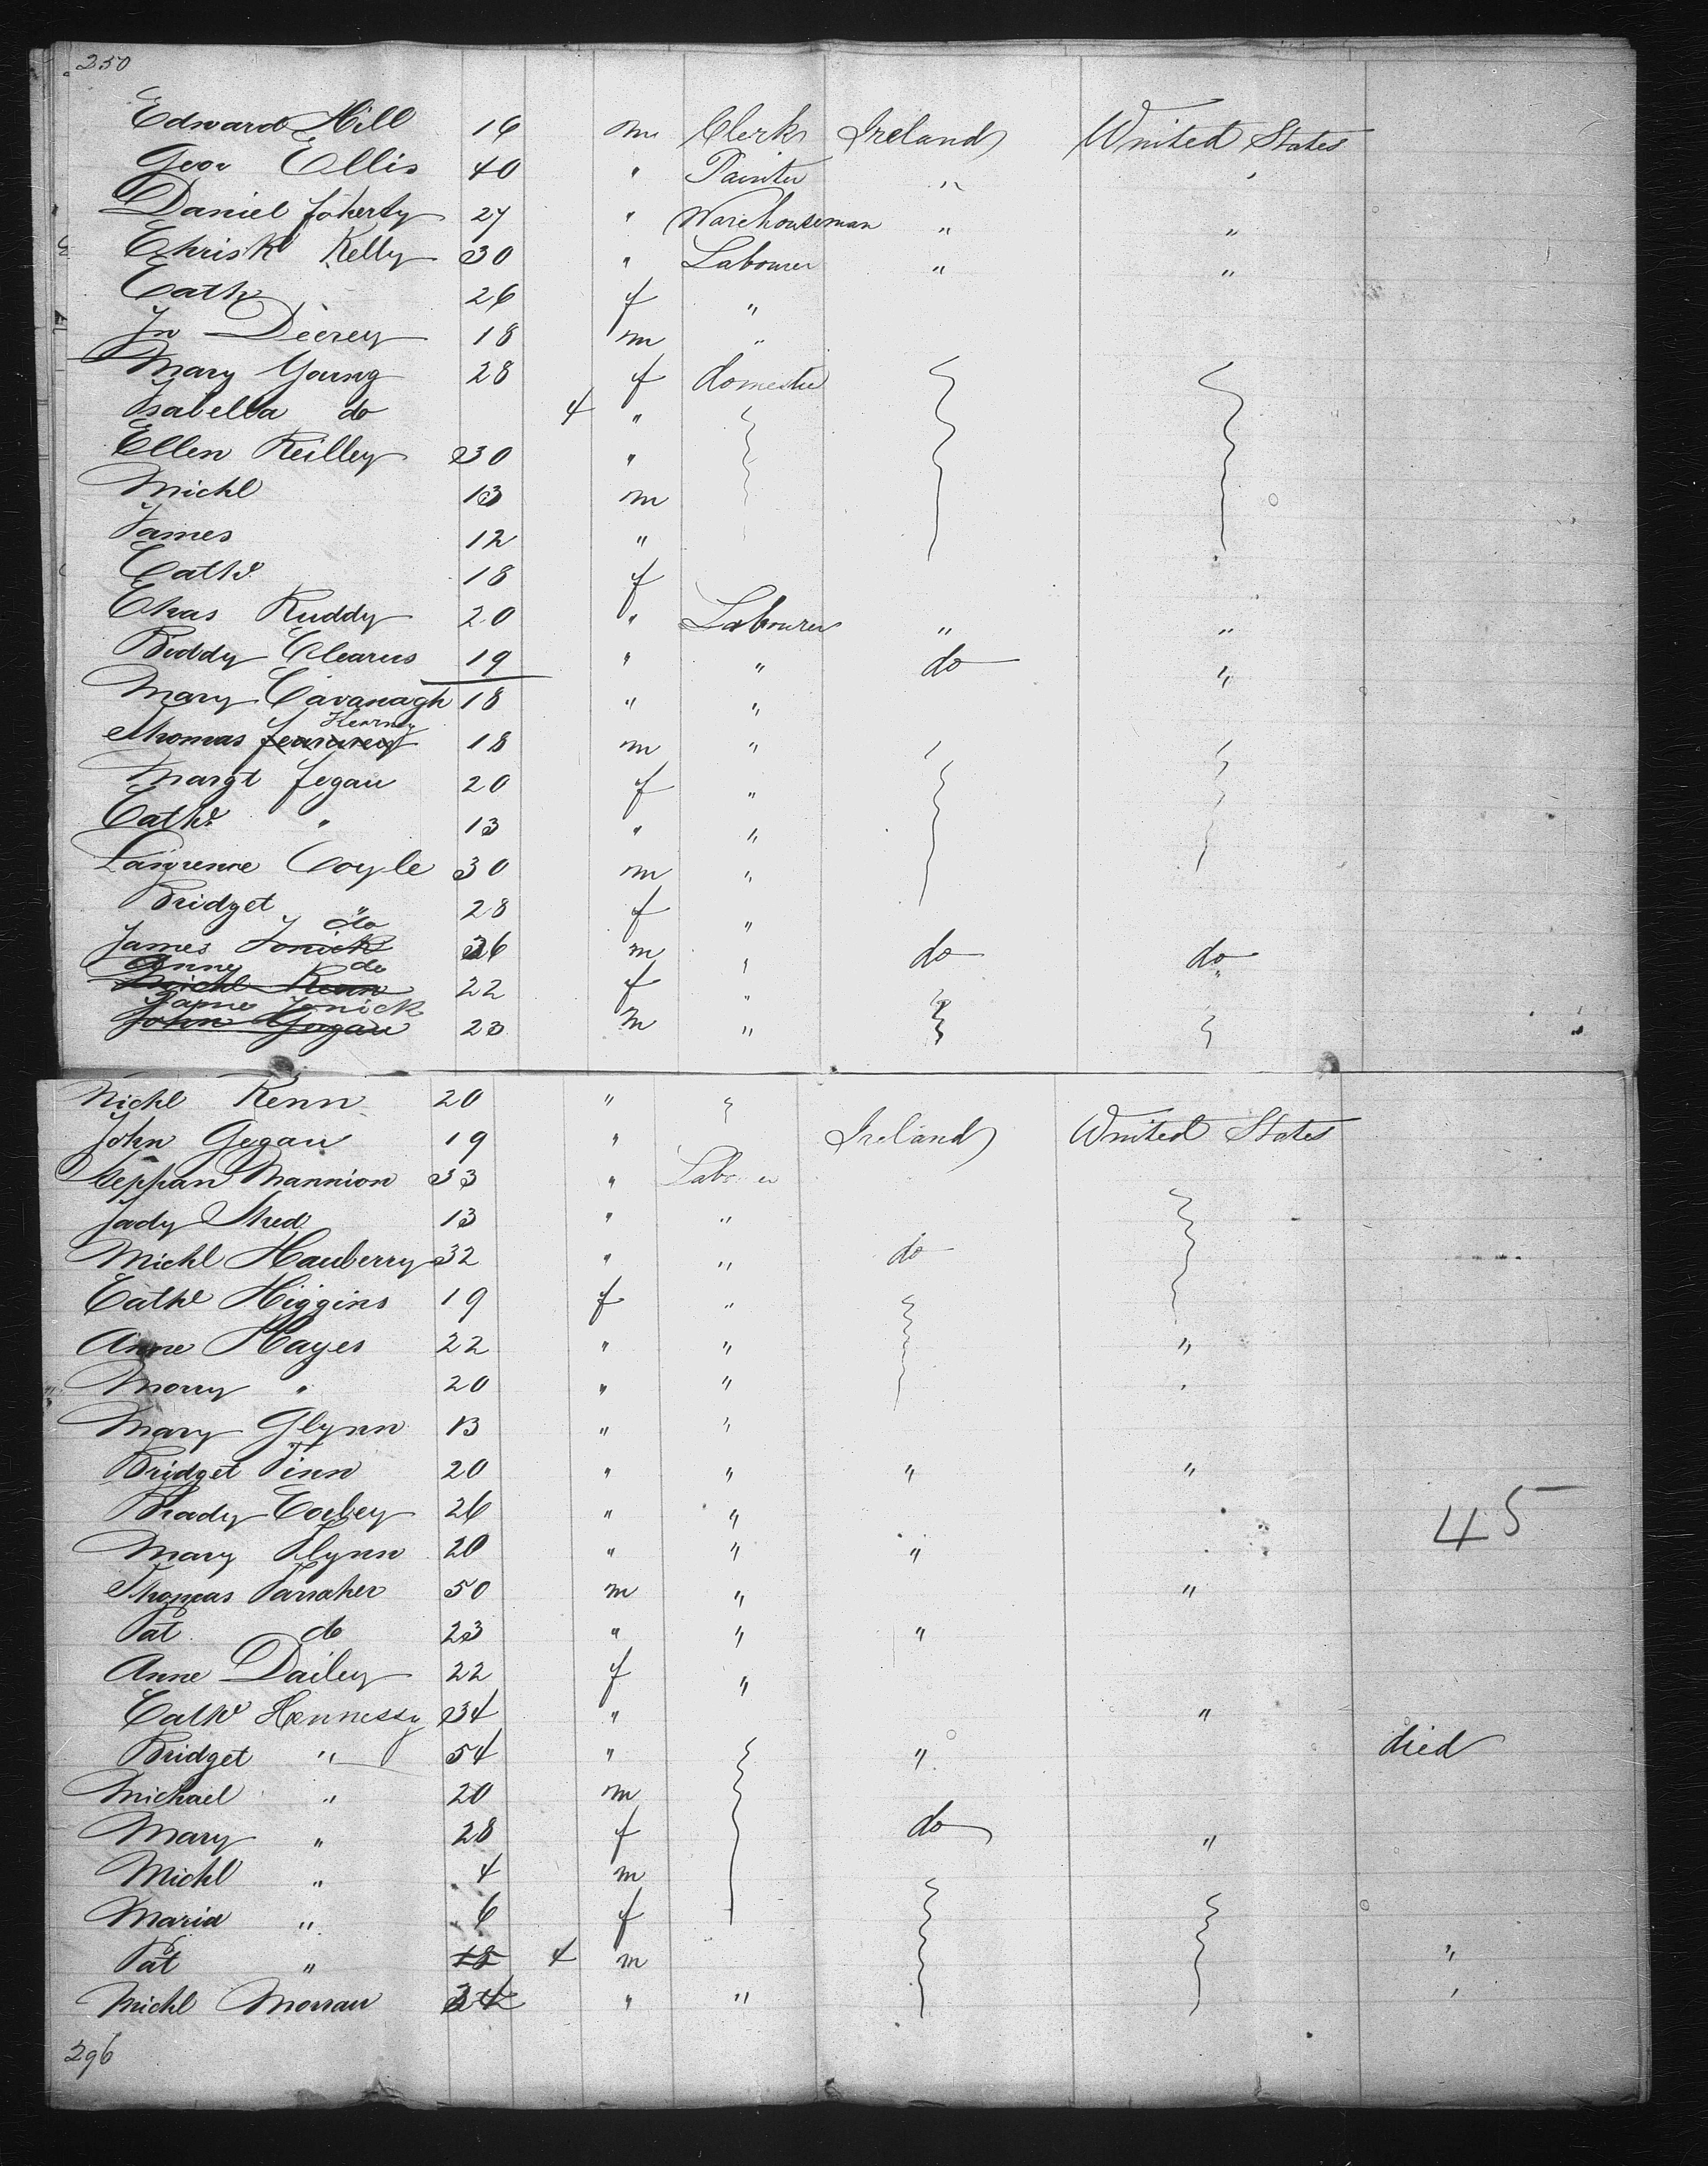 250
Edward Hill 16 m Clerk Ireland United States
Geo Ellis 40 " Painter " "
Daniel Foherty 27 " Warehouseman " "
Christr Kelly 30 " Labourer " "
Cath 26 f "
Jn Deerey 18 m "
Mary Young 28 f domestic
Isabella do 4 "
Ellen Reilley 30 "
Michl 13 m
James 12 "
Cathe 18 f
Chas Ruddy 20 " Labourer " "
Biddy Clearus 19 " " do "
Mary Cavanagh 18 " "
Kearney
Thomas 18 m "
Margt Fegan 20 f "
Cathe " 13 " "
Lawrence Coyle 30 m "
Bridget " 28 f "
do
James Jonick 26 m " do do
Anne do
Michl Renn 22 f " "
James Jonick
John Gegan 23 m "
Michl Renn 20 "
John Gegan 19 " Ireland United States
Steppan Mannion 33 " Labourer
Jady Shed 13 " "
Michl Hauberry 32 " " do
Cathe Higgins 19 f "
Anne Hayes 22 " " "
Morry " 20 " " "
Mary Glynn 13 " "
Bridget Finn 20 " " " "
Thady Corbey 26 " "
45
Mary Flynn 20 " " "
Thomas Farraher 50 m " "
Pat do 23 " " "
Anne Dailey 22 f "
Cathe Hennessy 34 " "
Bridget " 54 " " died
Michael " 20 m
Mary " 28 f do "
Michl " 4 m
Maria " 6 f
Pat " 18 4 m "
Michl Morran 34 " " "
296